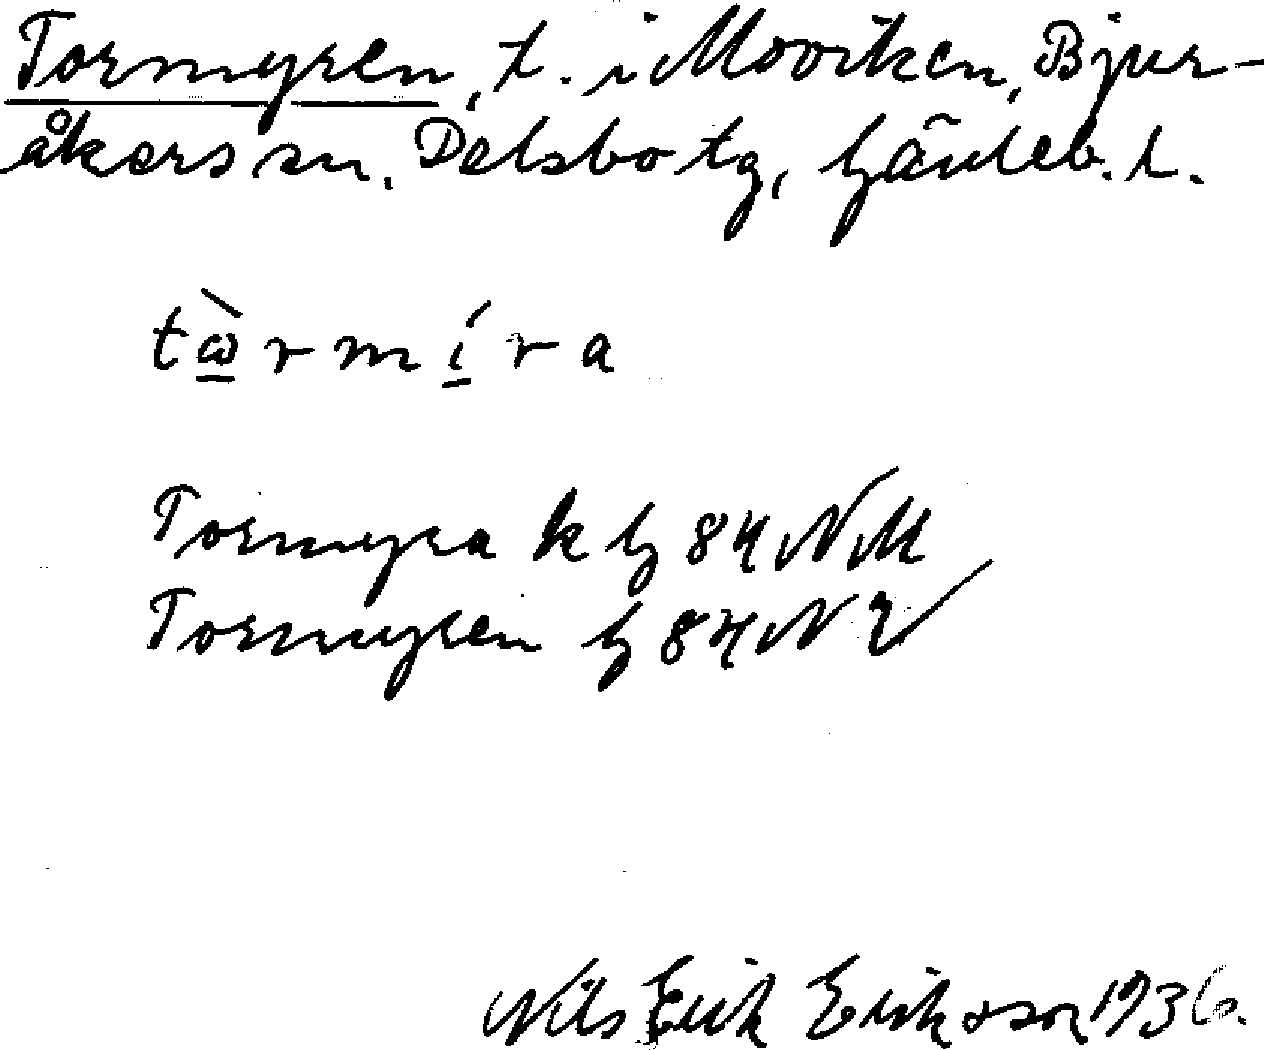 Tormyren, t. i Moviken, Bjur-
åkers sn. Delsbo tg, Gävleb. l.
tὼrmíra
Tormyra k G 84 NM
Tormyren G 84 N
Nils Erik Eriksson 1936.